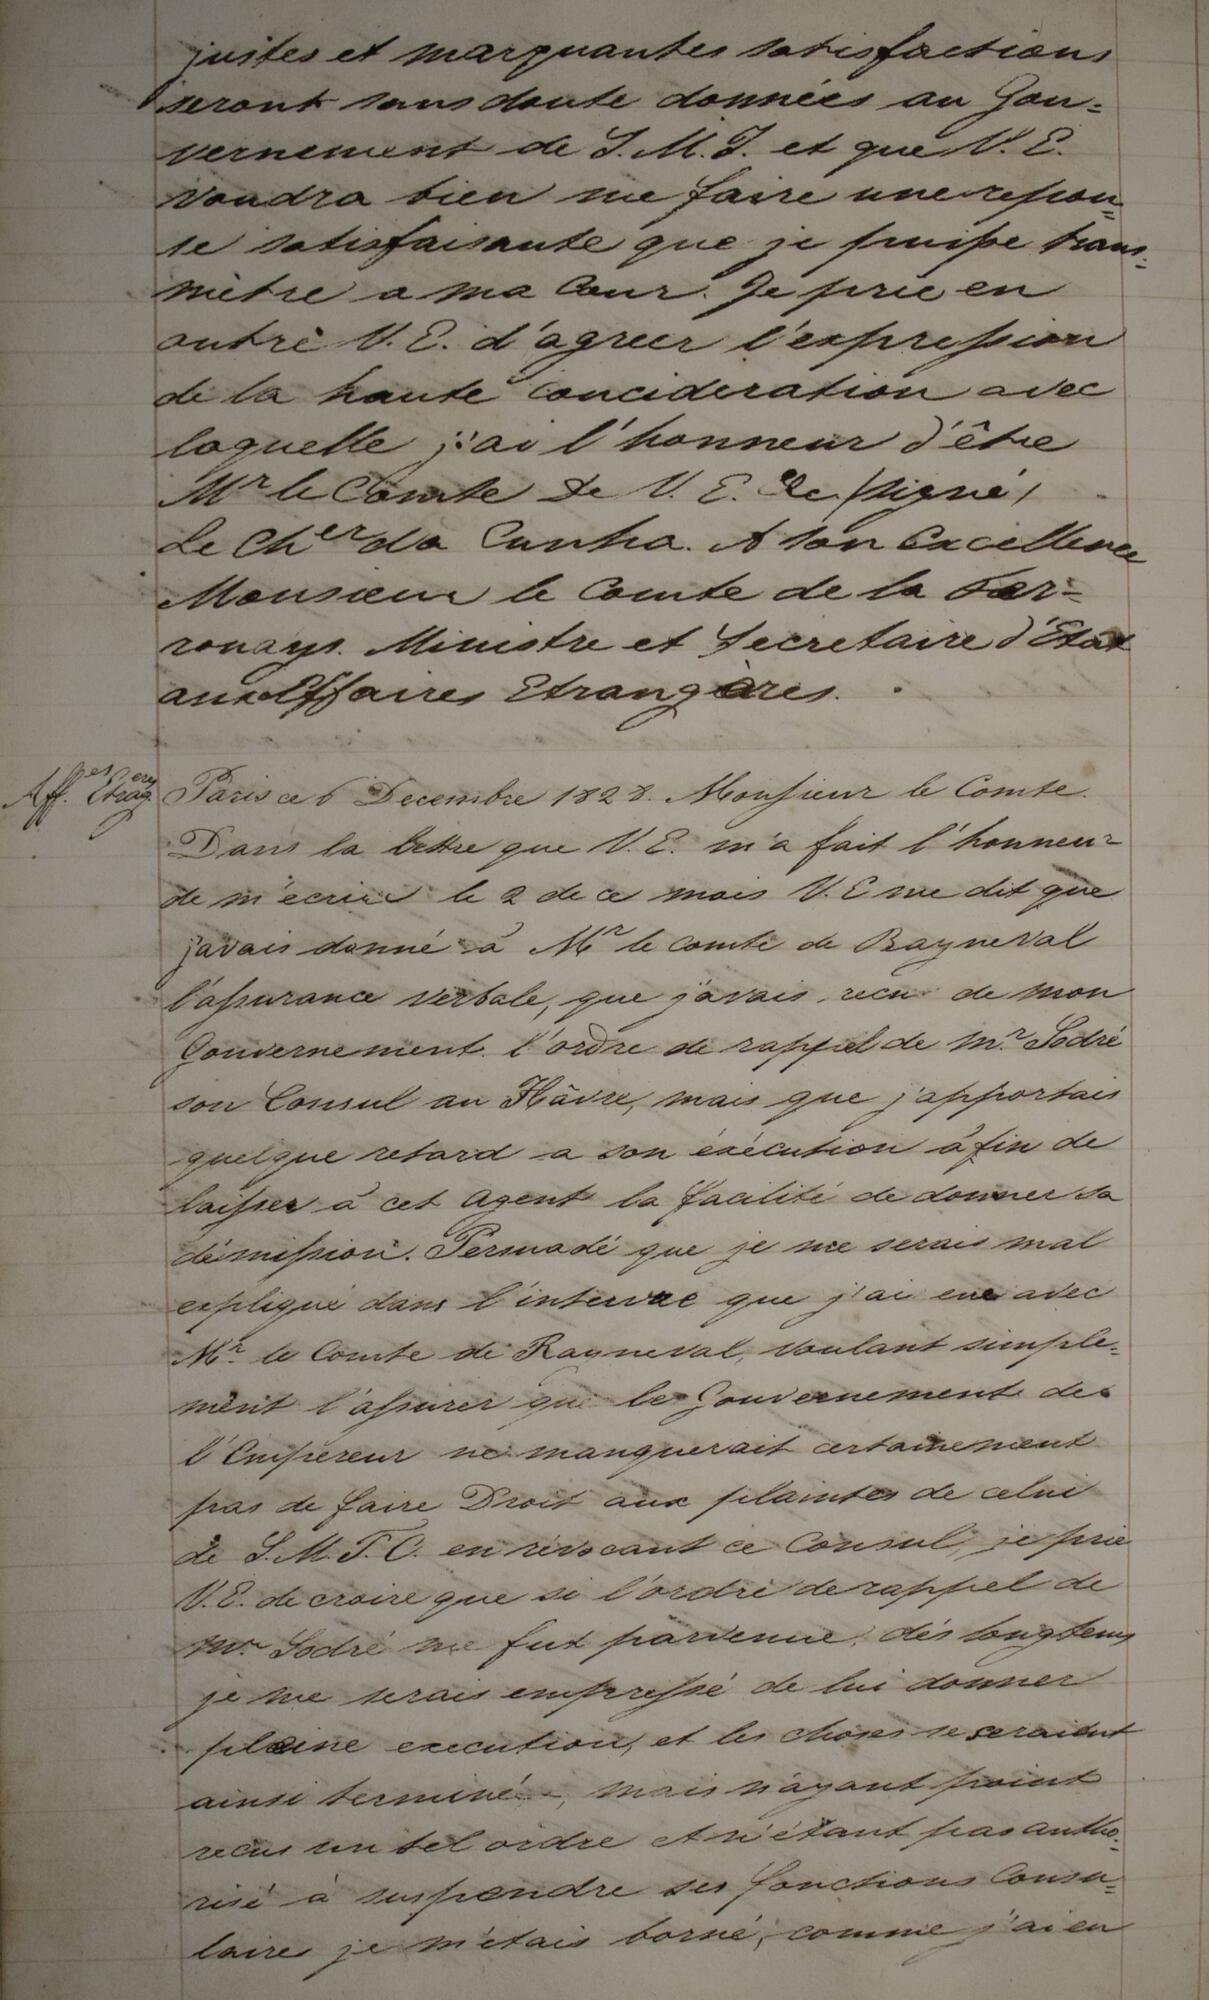 justes et marquantes satisfactions
seront sans doute données au Gou=
vernement de S. M. I. et que V. E.
voudra bien me faire une repon=
se satisfaisante que je puisse trans=
mètre a ma Cour. Je prie en
outre V. E. d'agreer l'expression
de la haute concideration avec
laquelle j'ai l'honneur d'être
Mr le Comte De V. E. &e /signé/
Le Cher da Cunha. A son Excellence
Monsieur le Comte de la Fer-
ronays. Ministre et Secretaire d'Etat
aux Affaires Etrangères.
Affes Etrageres
Paris ce 6 Decembre 1828. Monsieur le Comte.
Dans la lettre que V. E. m'a fait l'honneur
de m'ecrire le 2 de ce mois V. E me dit que
j'avais donné à Mr le Comte de Rayneval
l'assurance verbale, que j'avais recu de mon
Gouvernement l'ordre de rappel de Mr. Sodré
son Consul au Hâvre, mais que j'apportais
quelque retard a son éxécution àfin de
laisser à cet Agent la facilité de donner sa
démission. Persuadé que je me serais mal
expliqué dans l'intervue que j'ai eue avec
Mr. le Comte de Rayneval, voulant simple=
ment l'assurer que le Gouvernement de
l'Empereur ne manquerait certainement
pas de faire Droit aux plaintes de celui
de S. M. T. C. en révocant ce Consul, je prie
V. E. de croire que si l'ordre de rappel de
Mr. Sodré me fut parvenue, dés longtems
je me serais empressé de lui donner
pleine execution, et les choses se ceraient
ainsi terminé, mais n'ayant point
recus un tel ordre et n'étant pas autho=
risé à suspendre ses fonctions Consu=
laires je m'étais borné, comme j'ai eu